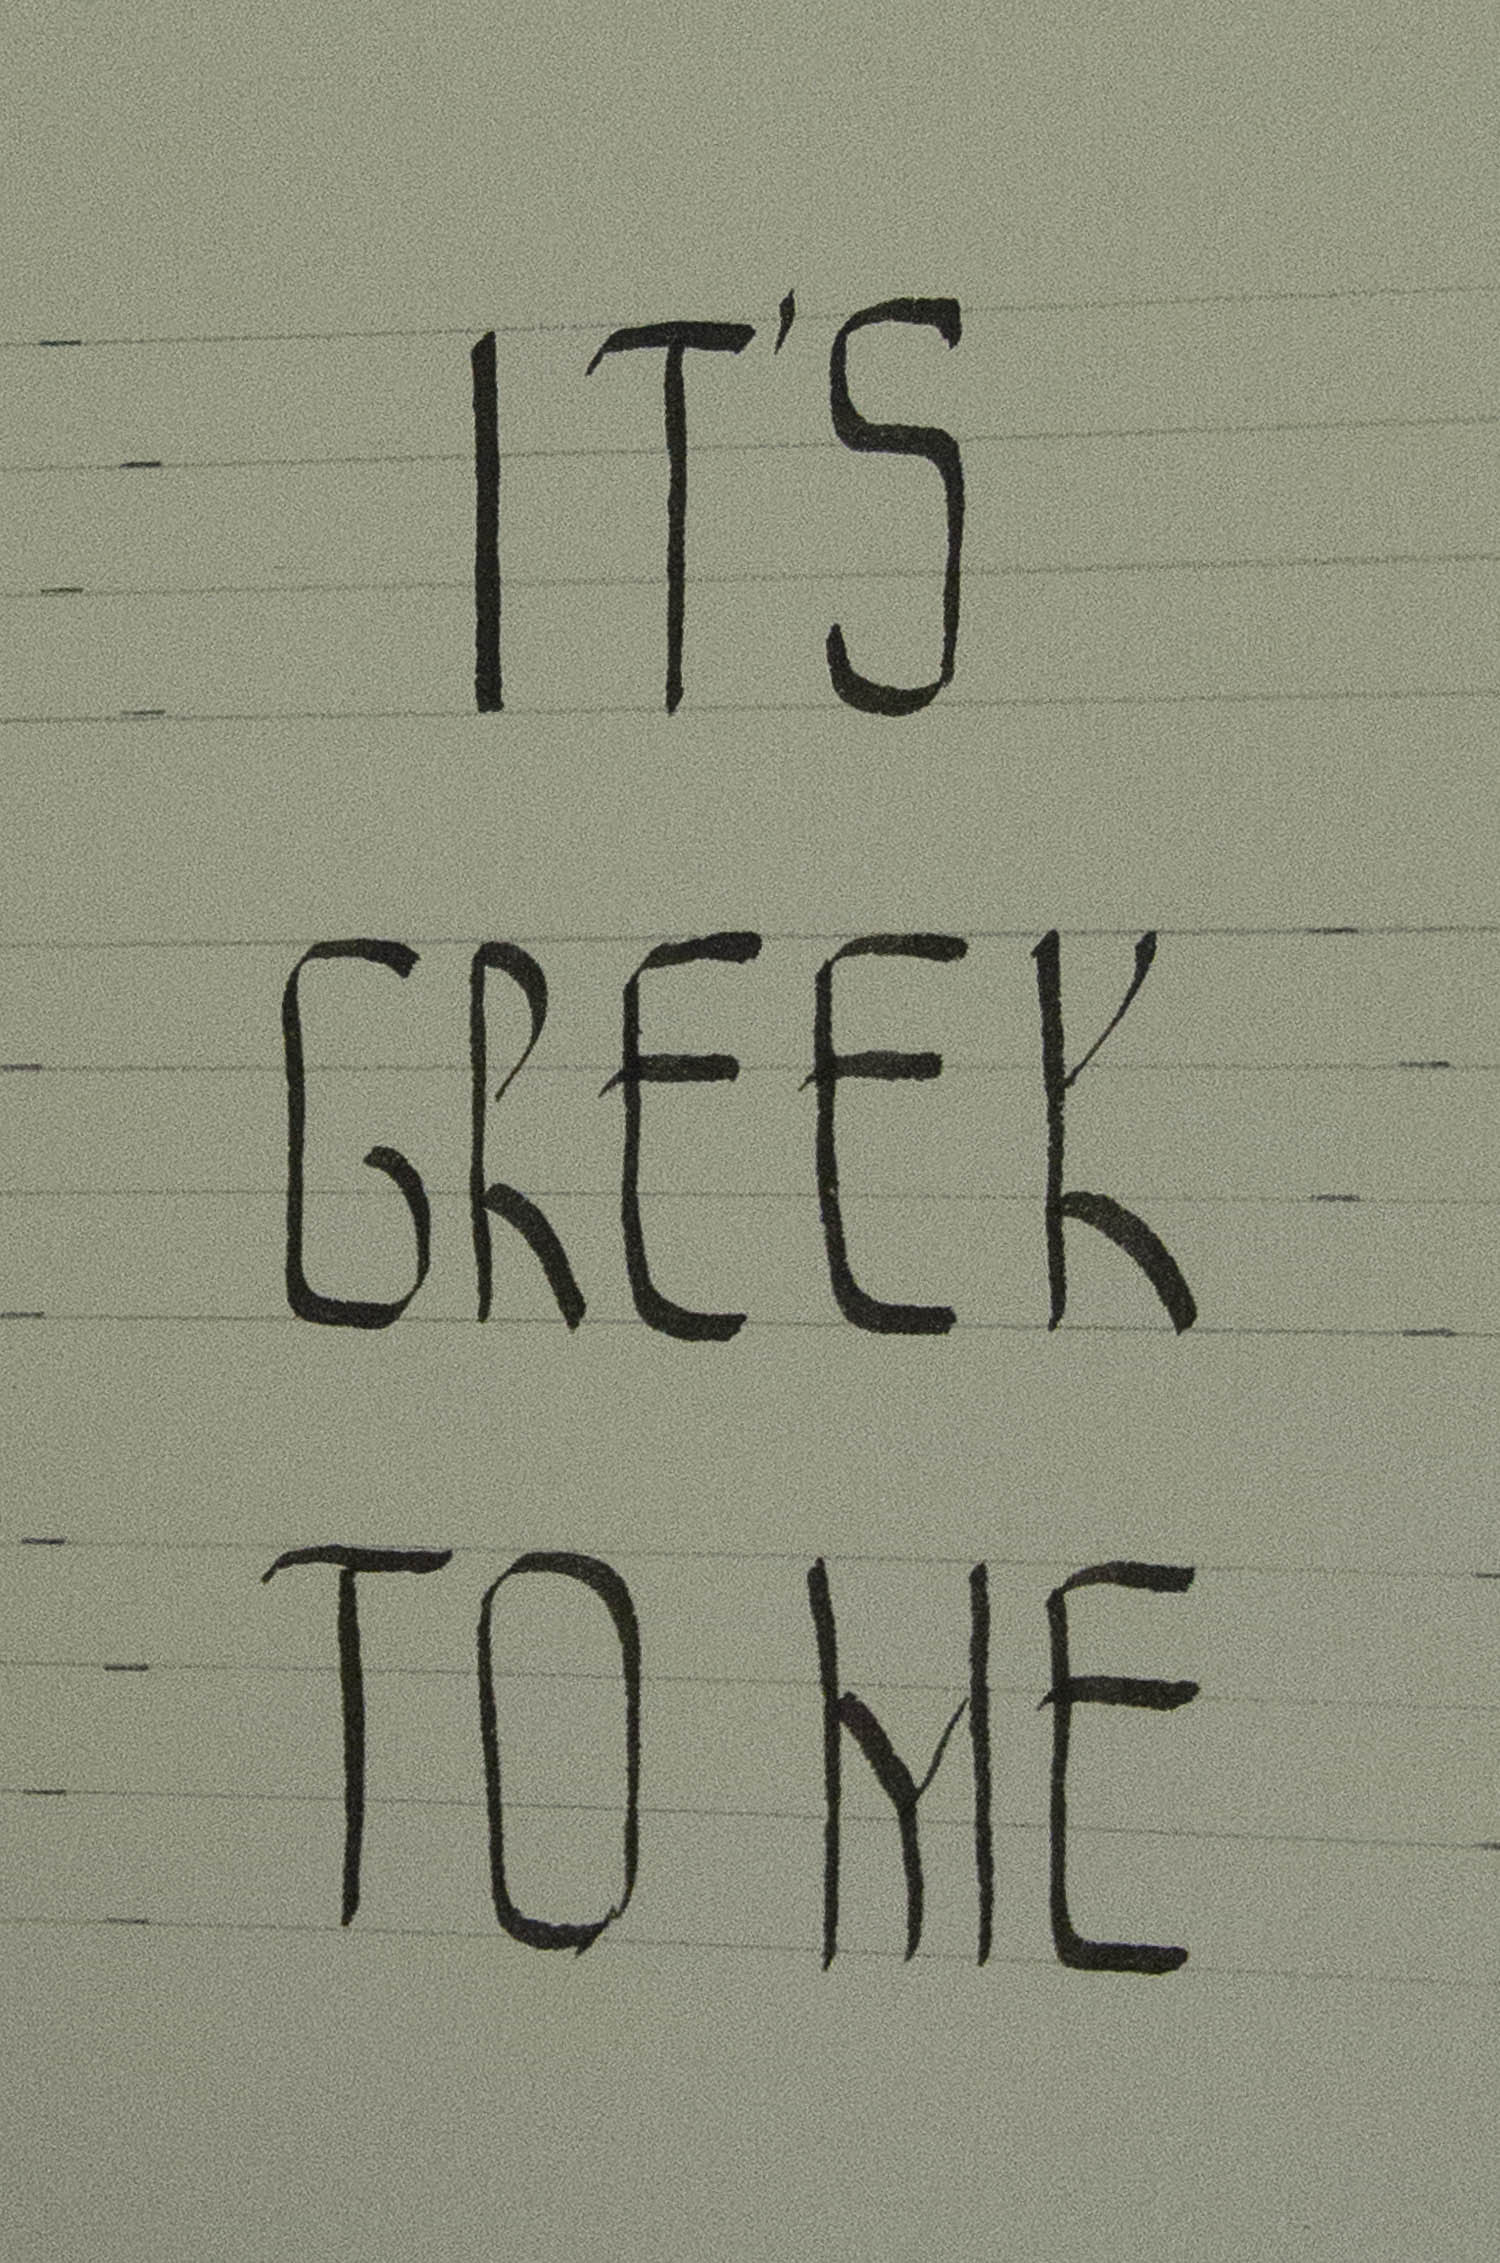 IT'S
GREEK
TO ME